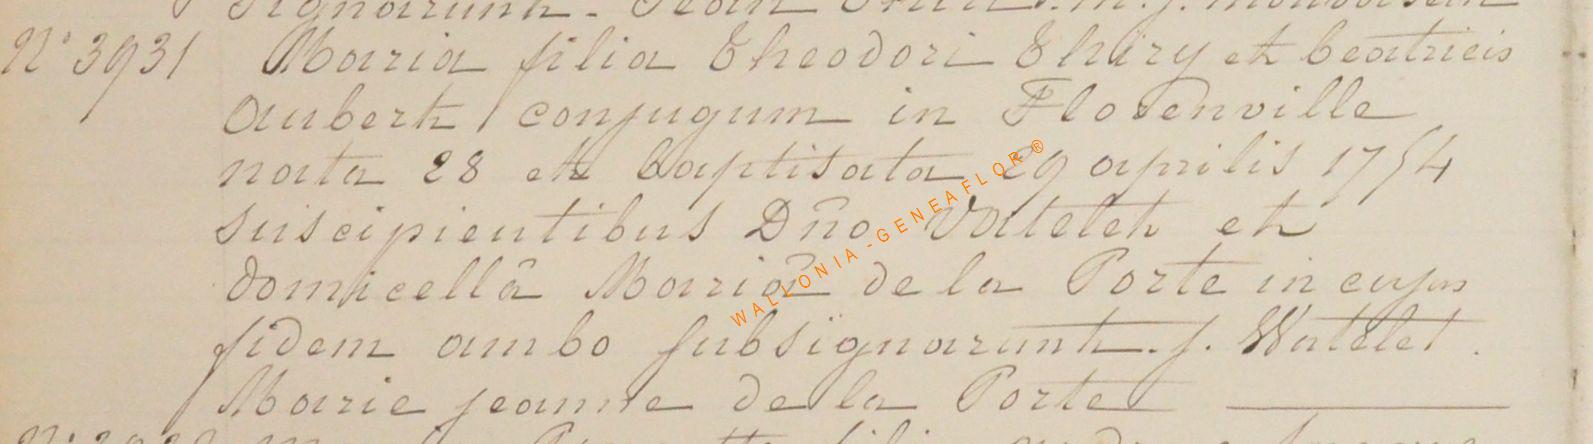 signarunt. Jean
N° 3931 Maria filia Theodori Thiry et beatricis
aubert conjugum in Florenville
nata 28 et baptisata 29 aprilis 1754
suscipientibus Dn̄o Vatelet et
domicellâ Mariâ de la Porte in cujus
fidem ambo subsignarunt. j. Watelet.
Marie jeanne de la Porte
WALLONIA - GENEAFLOR ®